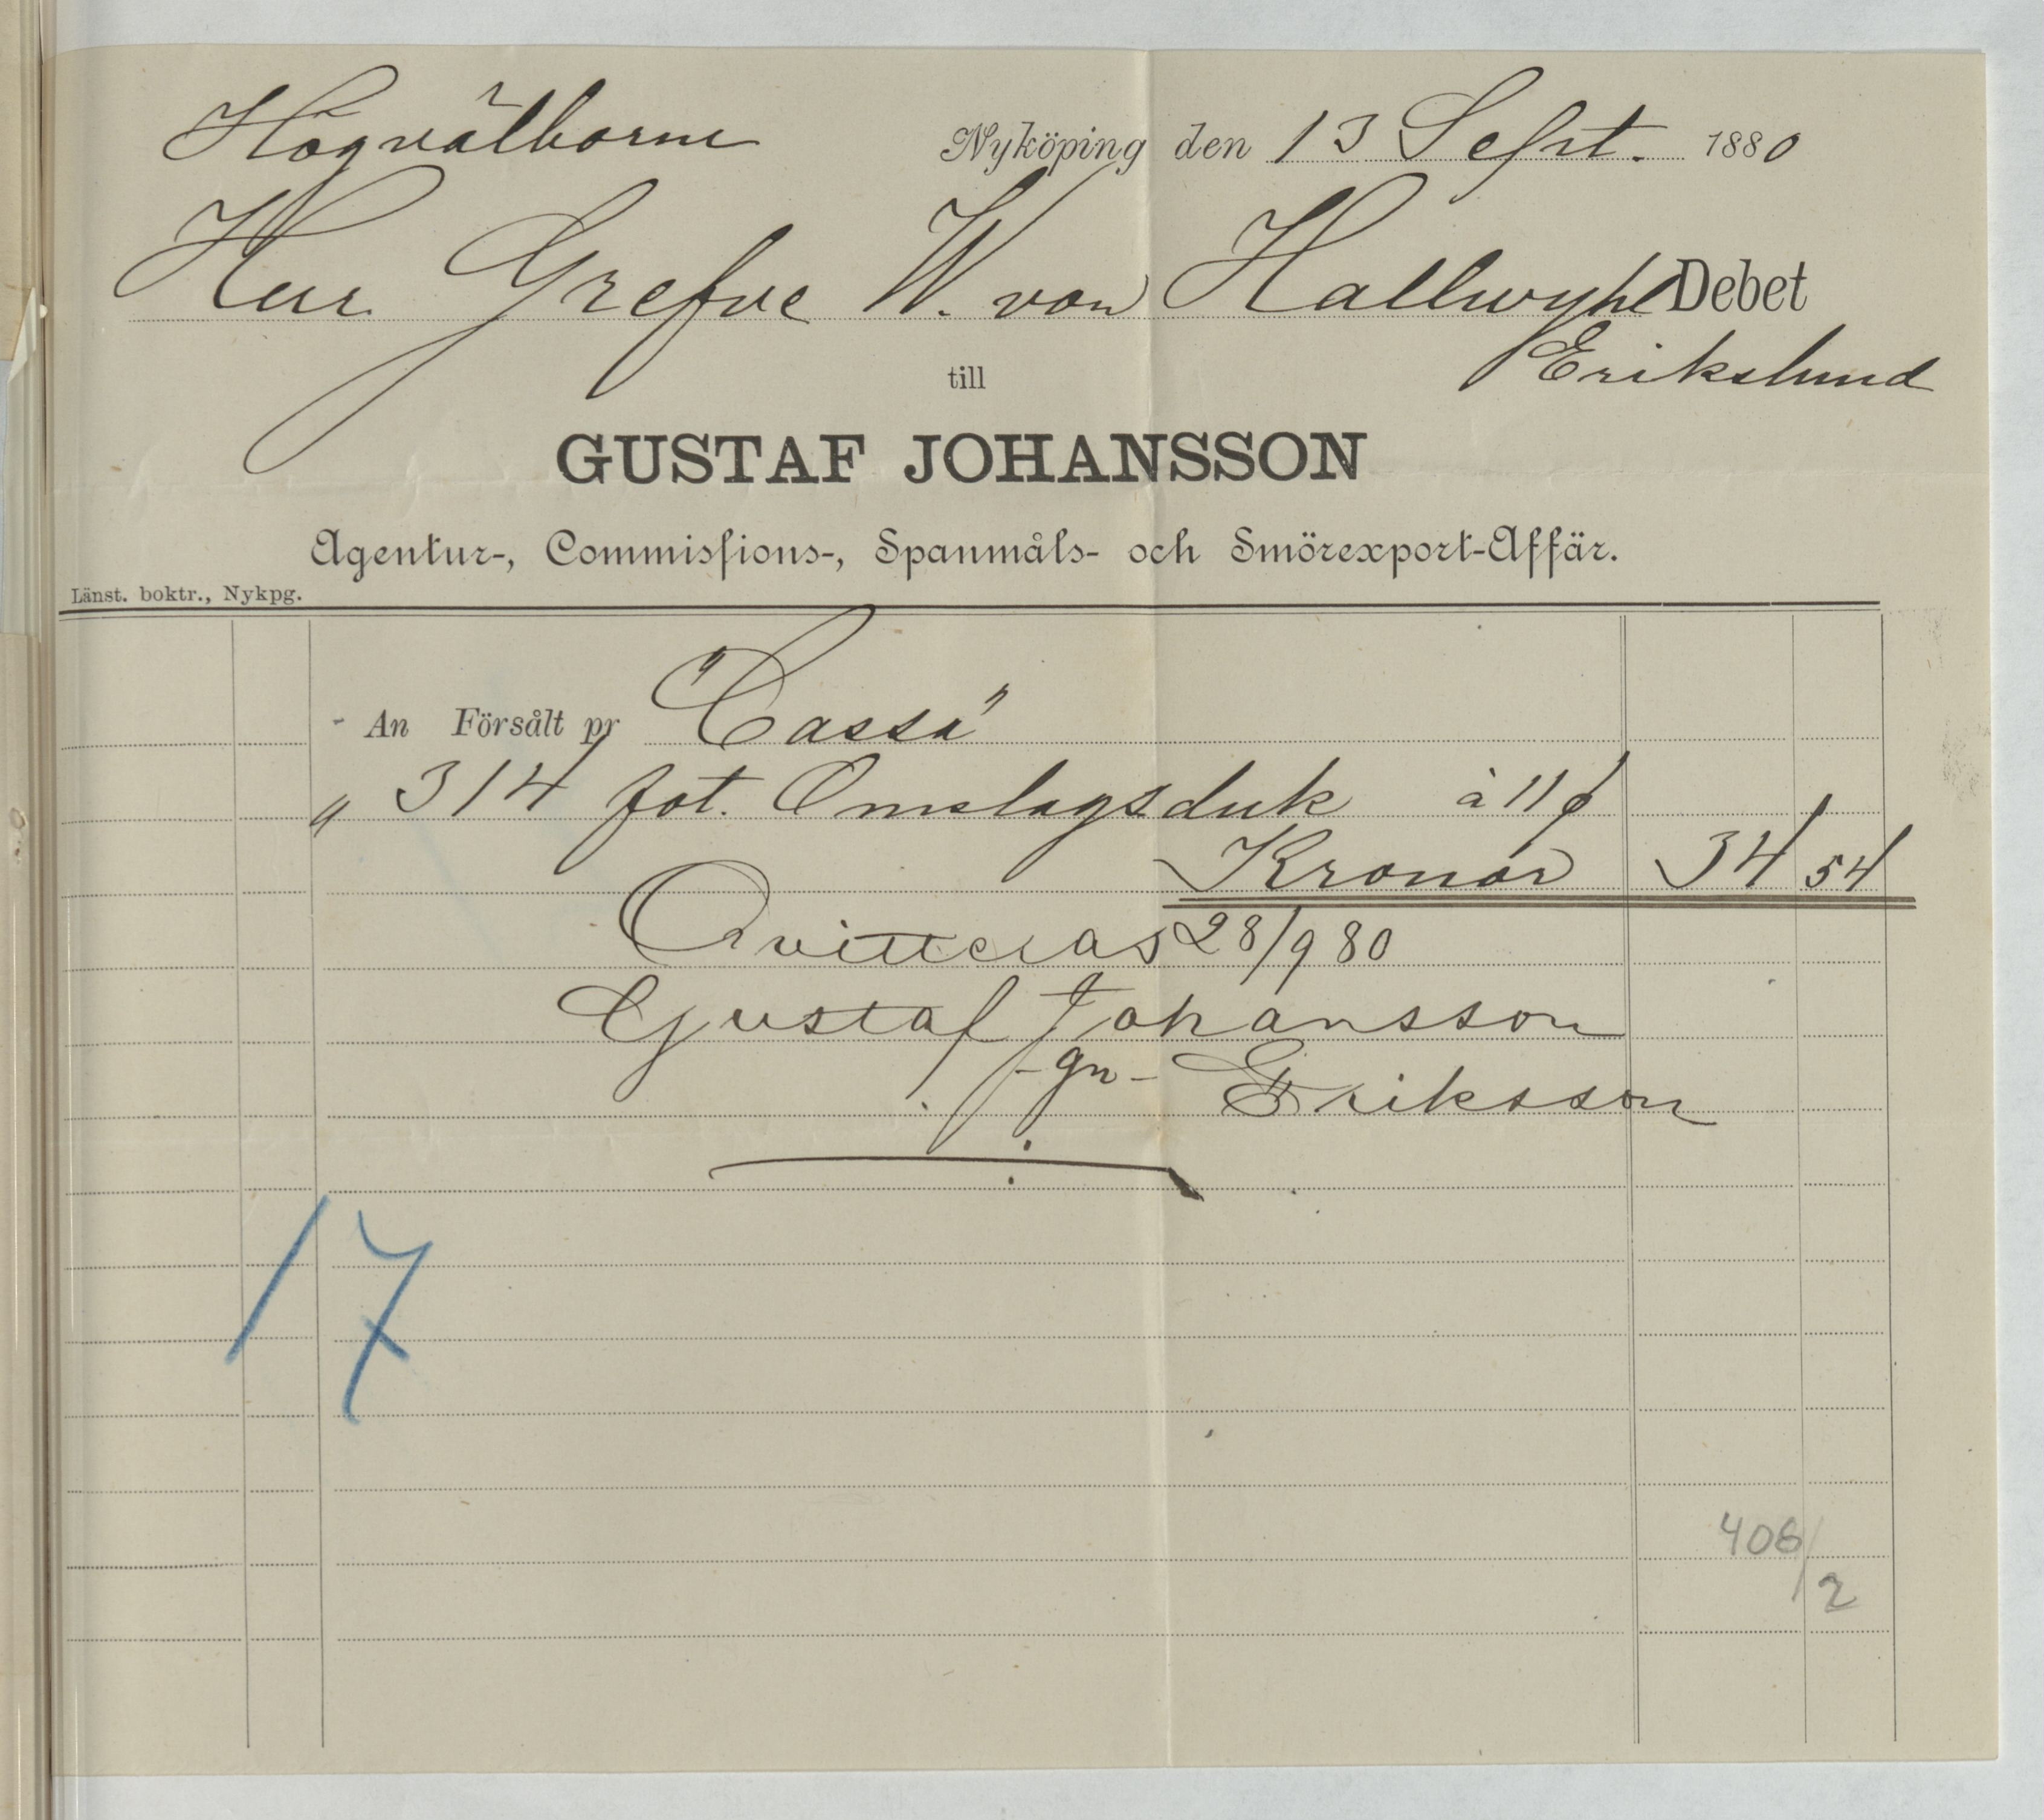 Högvälborne
Nyköping den 13 Sept. 1880
Herr Grefve W. von Hallwyhl Debet
Erikslund
till
GUSTAF JOHANSSON
Agentur-, Commissions-, Spanmåls- och Smörexport-Affär.
Länst. boktr., Nykpg.
An Försålt pr "Cassa"
" 314 fot. Omslagsduk à 11 ø
Kronor 34 54
Qvitteras 28/9 80
Gustaf Johansson
-gn- Eriksson
17
406/2